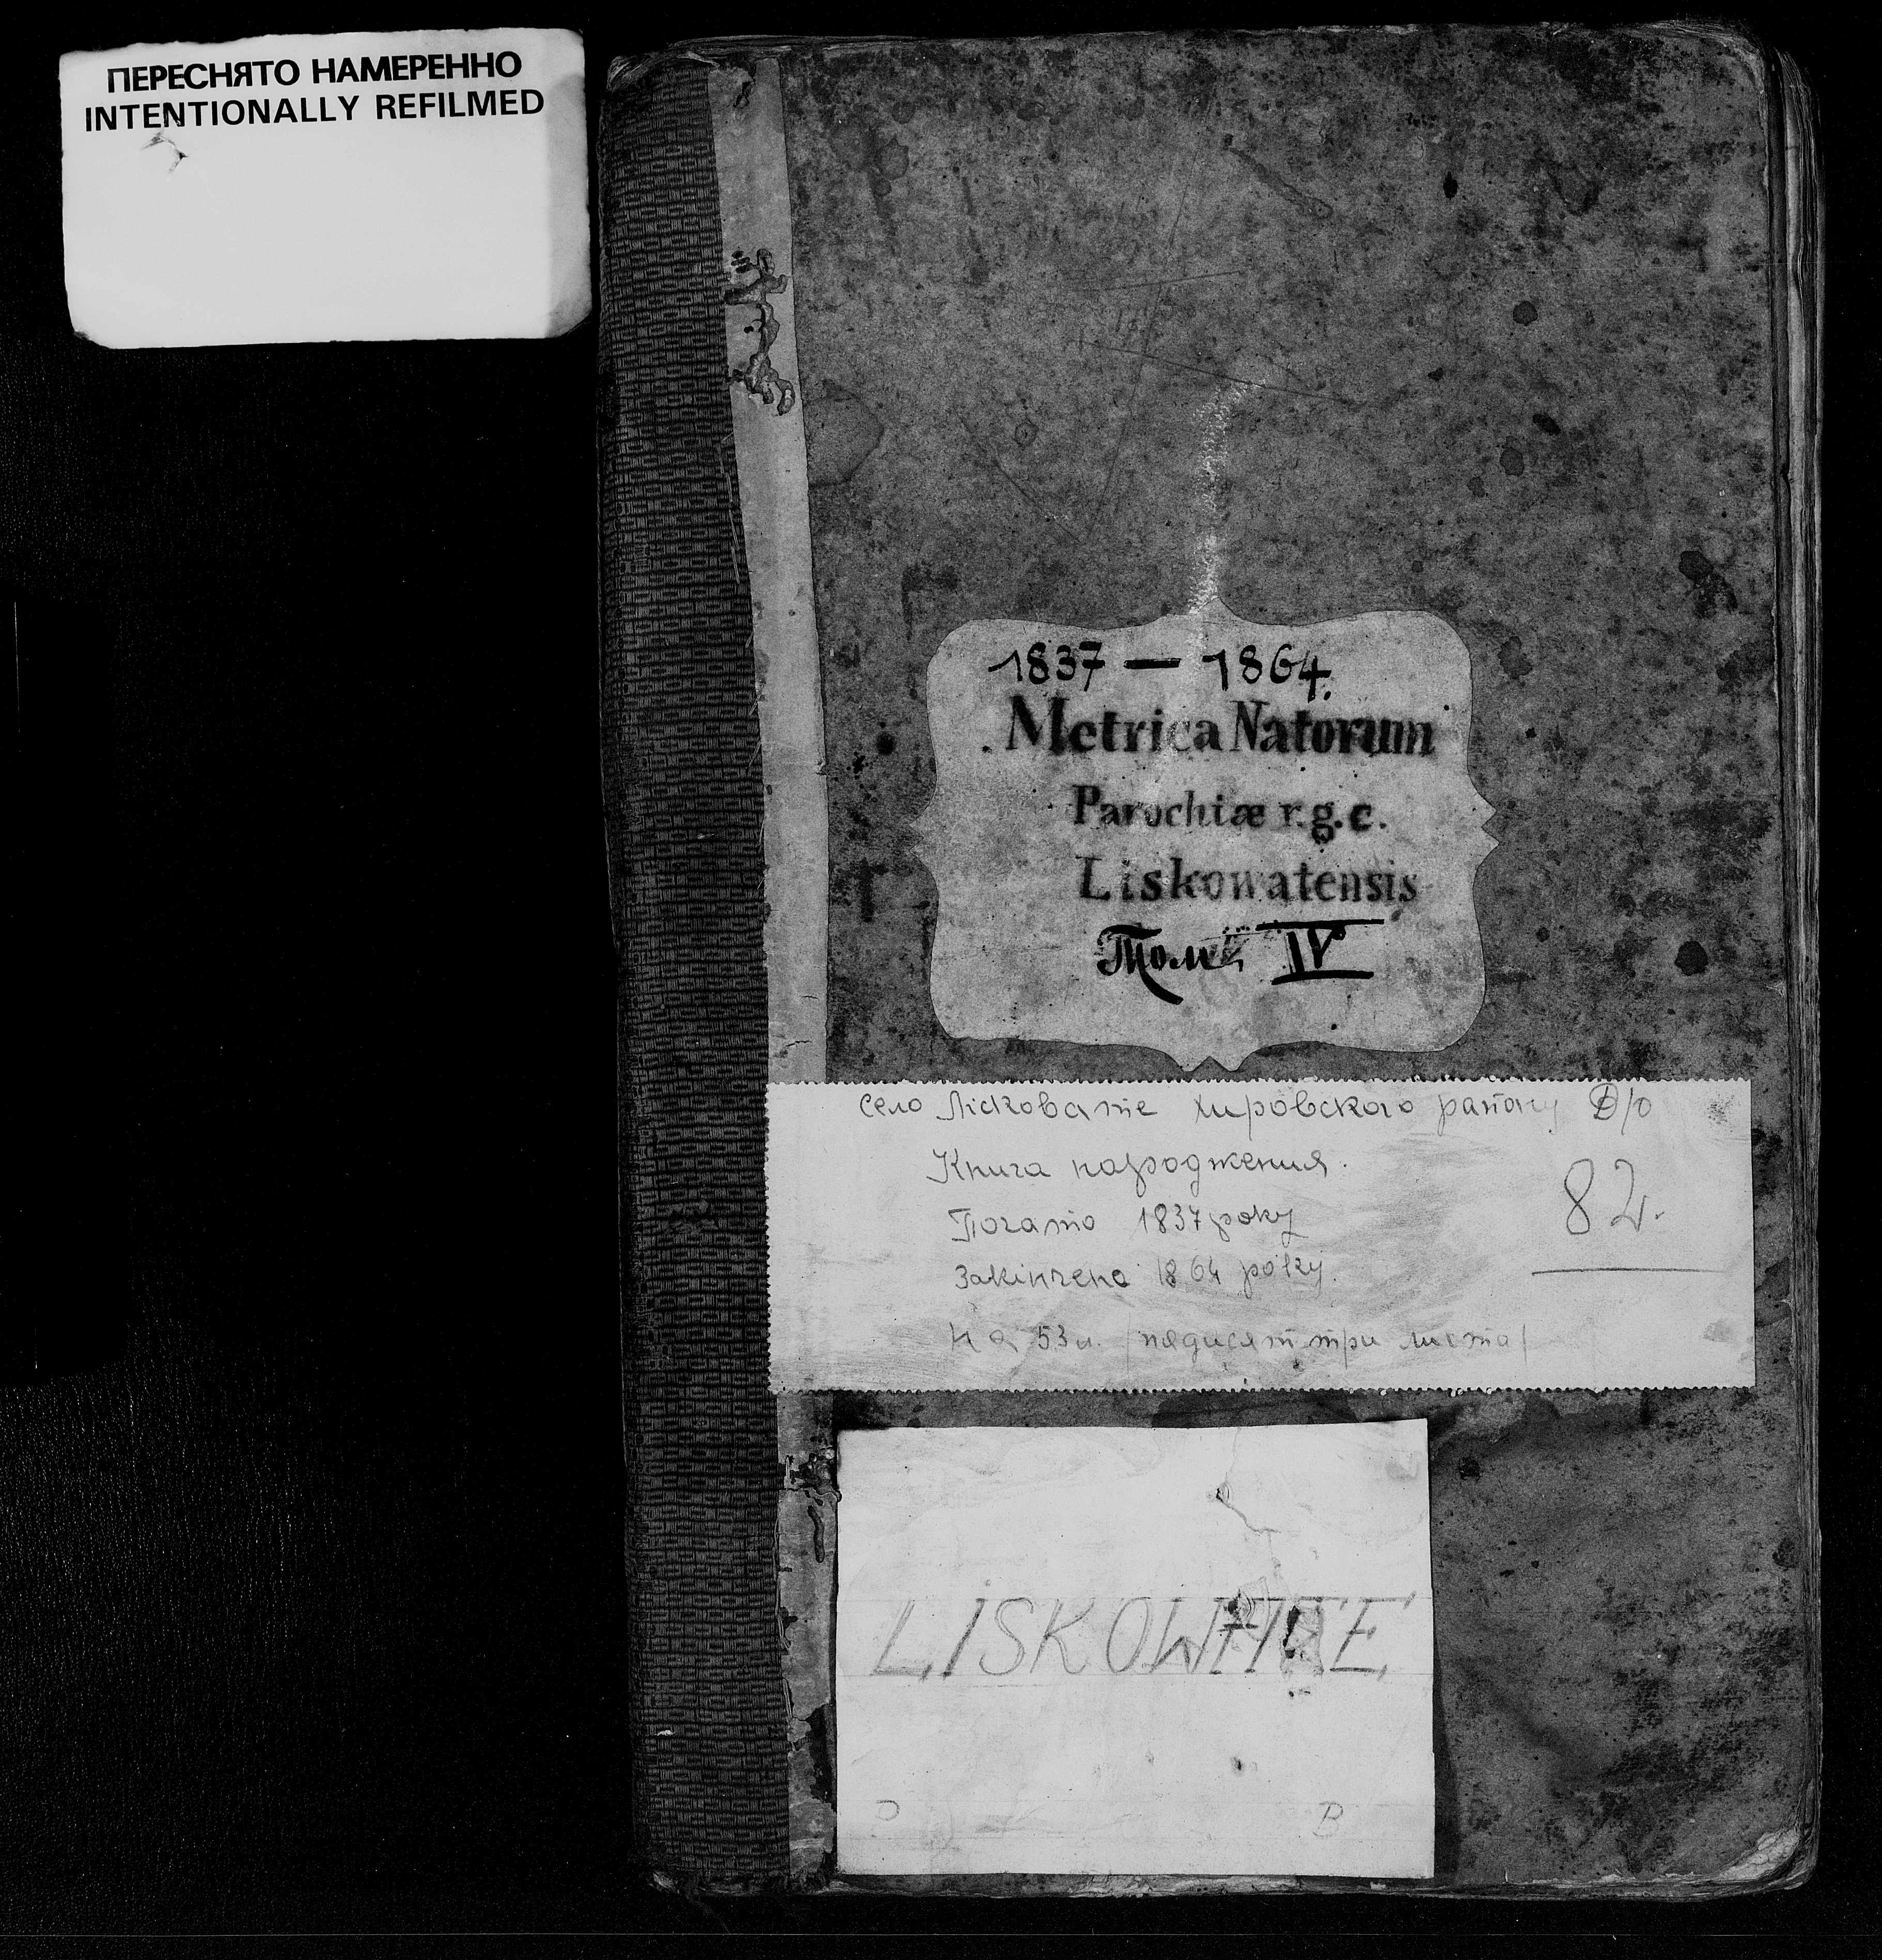 ПЕРЕСНЯТО НАМЕРЕННО
INTENTIONALLY REFILMED
1837 — 1864.
Metrica Natorum
Parochiæ r.g.c.
Liskowatensis
Томъ IV
село Лісковате Хировского району Д/о
Книга народження.
Почато 1837 року
82.
Закінчено 1864 року.
на 53 л. /пядисят три листа/
LISKOWATE